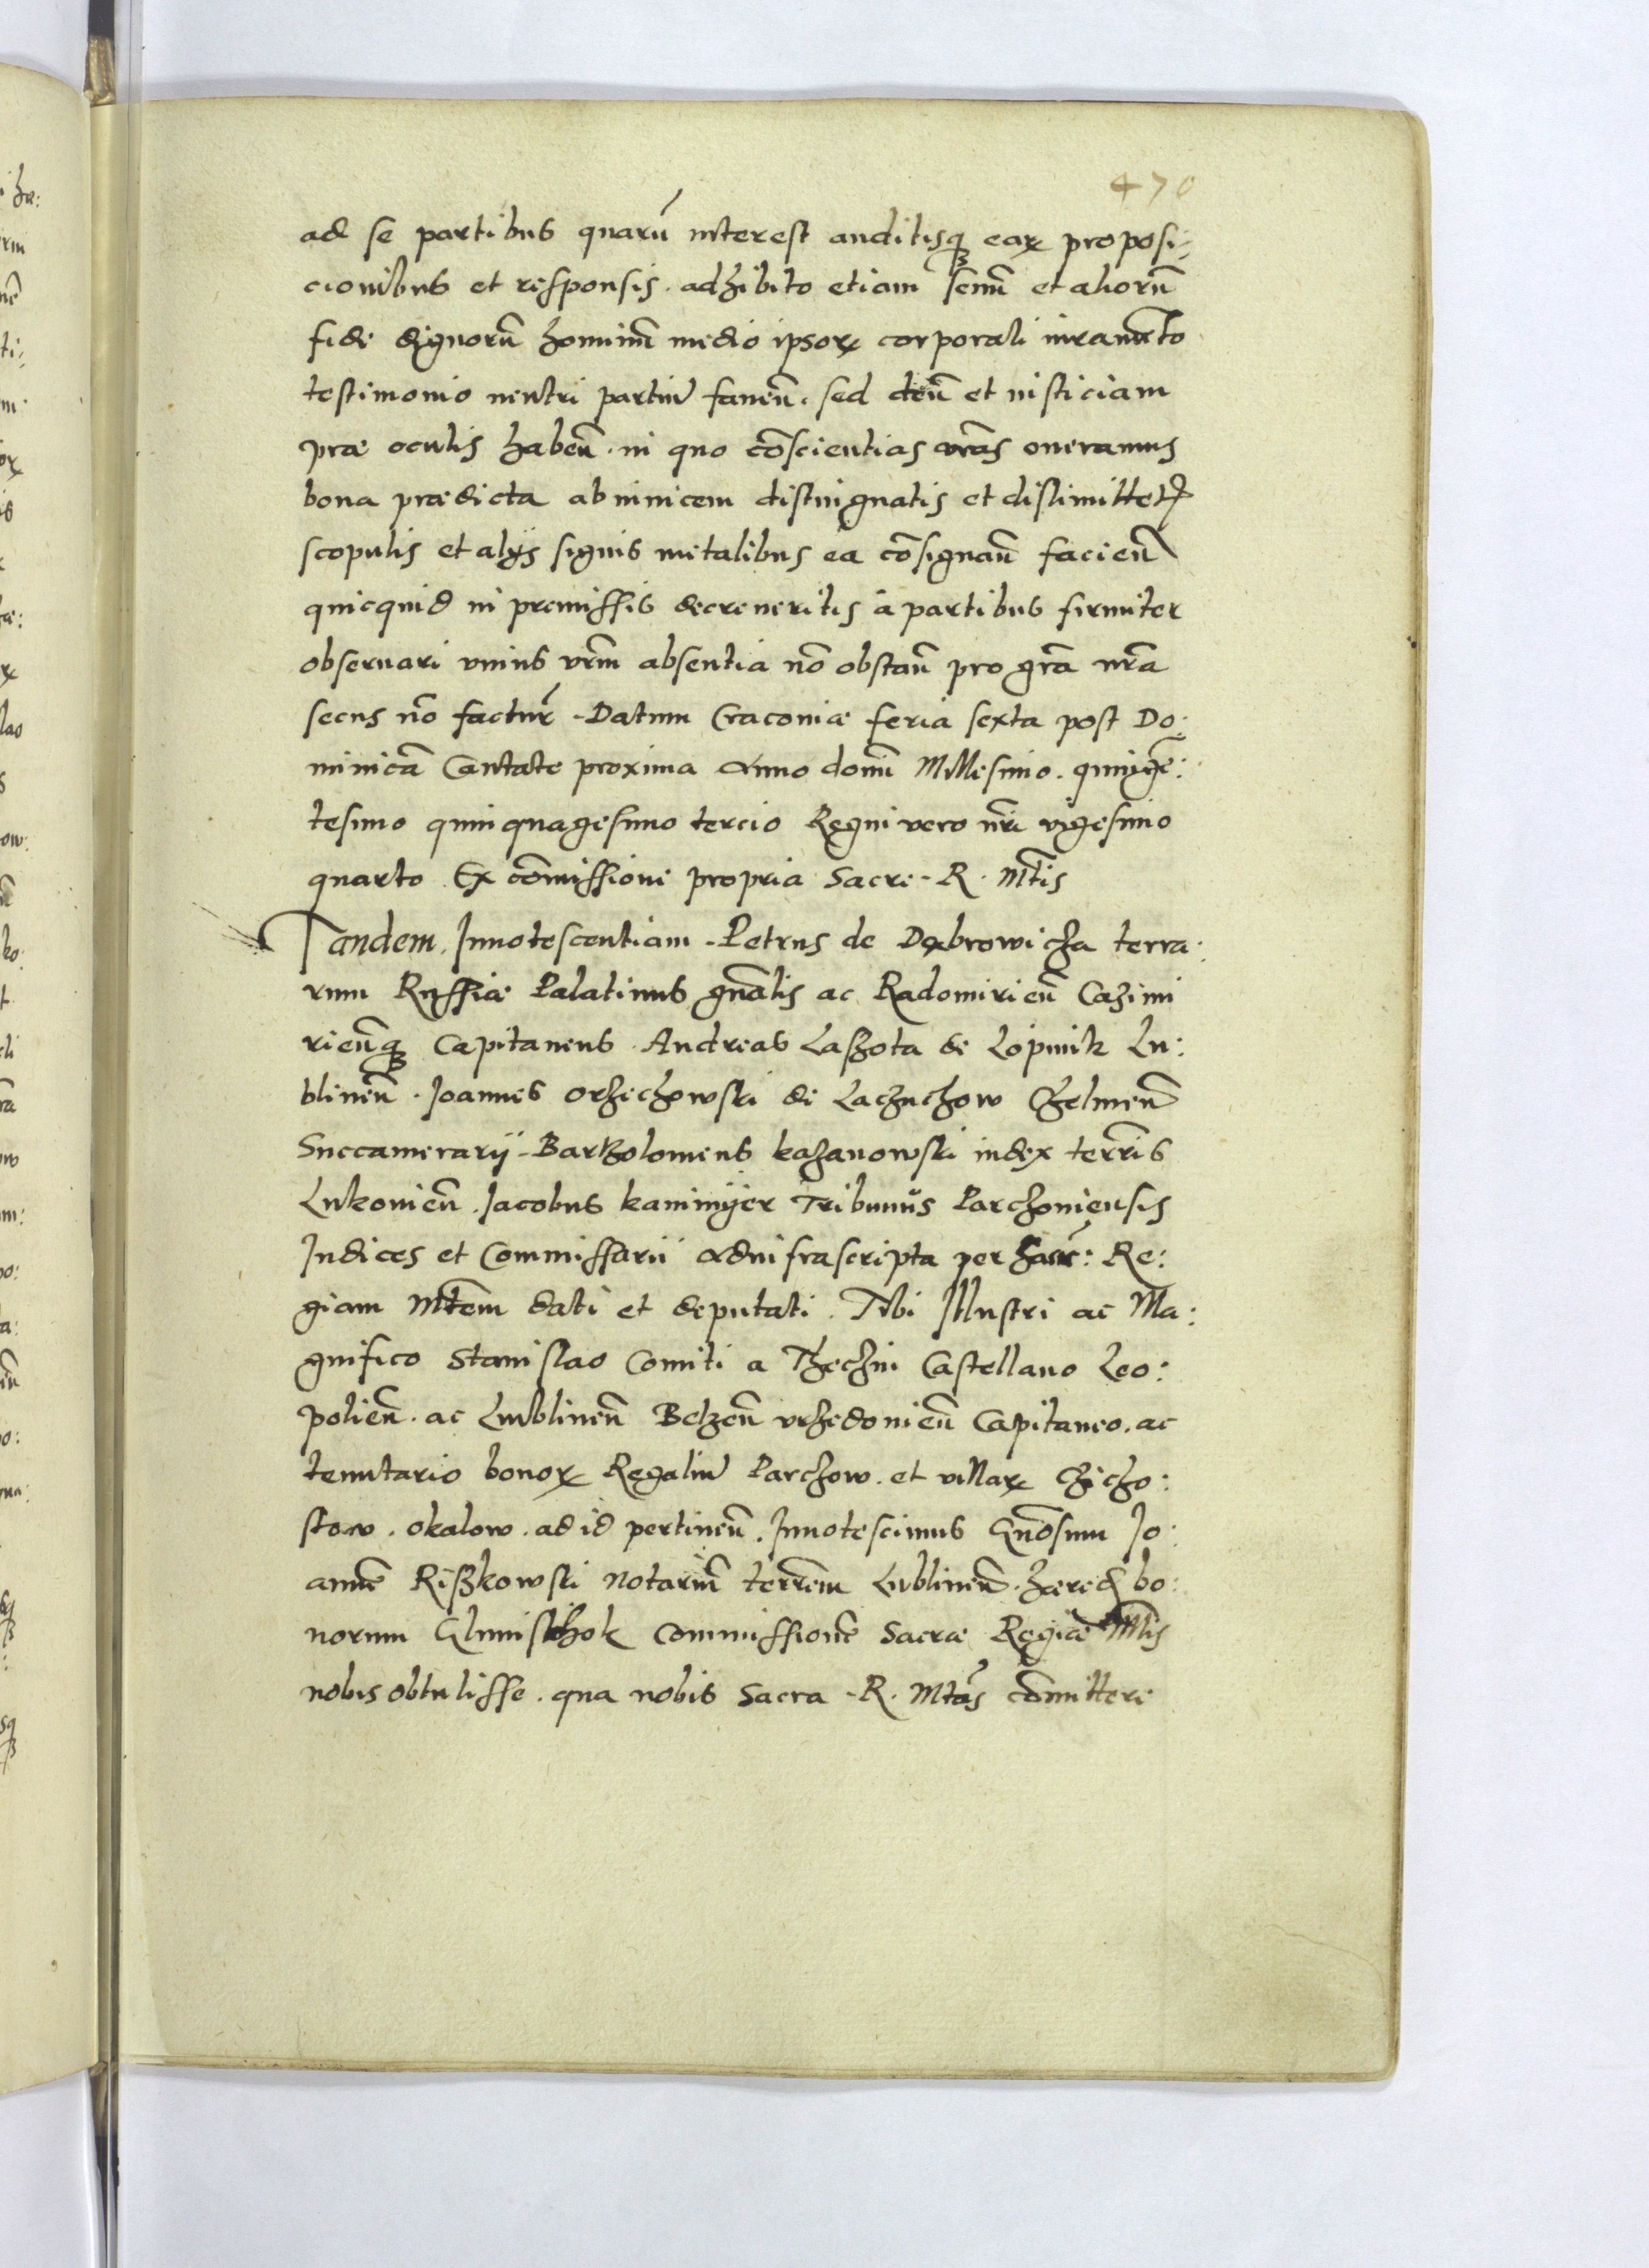 470
ad se partibus quarū interest auditisq₃ eaꝝ proposi-
cionibus et responsis. adhibito etiam senū et aliorū
fide dignorū hominū medio ipsoꝝ corporali iuramēto
testimonio neutri partiū faueñ. sed deū et iusticiam
præ oculis habeñ. in quo cōscientias vrās oneramus
bona prædicta ab inuicem distinguatis et dislimittetis
scopulis et alÿs signis metalibus ea cōsignañ facieñ
quicquid in premissis decreueritis à partibus firmiter
obseruari vnius vrm̄ absentia nō obstañ pro grā nrā
secus nō factur̄. Datum Cracouiæ feria sexta post Do:
minicā Cantate proxima Anno domī Millesimo. quinge:
tesimo quinquagesimo tercio Regni vero nrī vigesimo
quarto Ex cōmissione propria Sacre. R. Mtīs
Tandem. Innotescentiam. Petrus de Dąbrowicha terra:
rum Russiæ Palatinus gnālis ac Radomirieñ Cazimi
rieñq₃ Capitaneus. Andreas Laszota de Lopinik Lu:
blineñ. Joannes Orzechowski de Lachuchow Chelmeñ
Succamerarÿ. Bartholomeus kazanowski iudex terrīs
Lukouieñ. Jacobus kaminÿer Tribunus Parchouiensis
Iudices et Commissarii ad infrascripta per Sacr̄: Re:
giam Mtēm dati et deputati. Tibi Illustri ac Ma:
gnifico Stanislao Comiti a Thechin Castellano Leo:
polieñ. ac Lublineñ Belzeñ vrzedouieñ Capitaneo. ac
tenutario bonoꝝ Regaliū Parchow. et villaꝝ Chicho:
stow. okalow. ad id pertineñ. Innotescimus Gnōsum Jo:
annē Riszkowski Notariū terrēm Lublineñ. hæred bo:
norum Glunisthok Commissionē Sacræ Regiæ Mtīs
nobis obtulisse. qua nobis Sacra. R. Mtās cōmittere